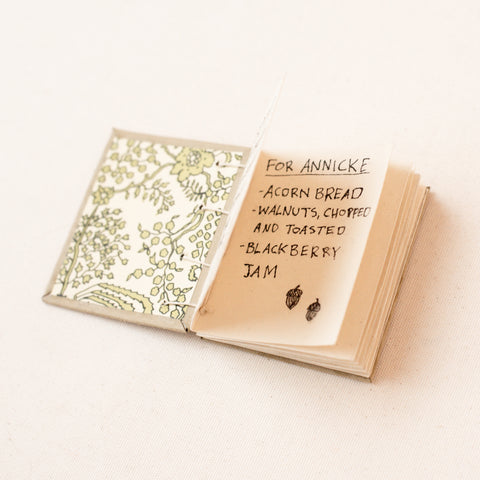 FOR ANNICKE
-ACORN BREAD
-WALNUTS, CHOPPED
AND TOASTED
-BLACKBERRY
JAM